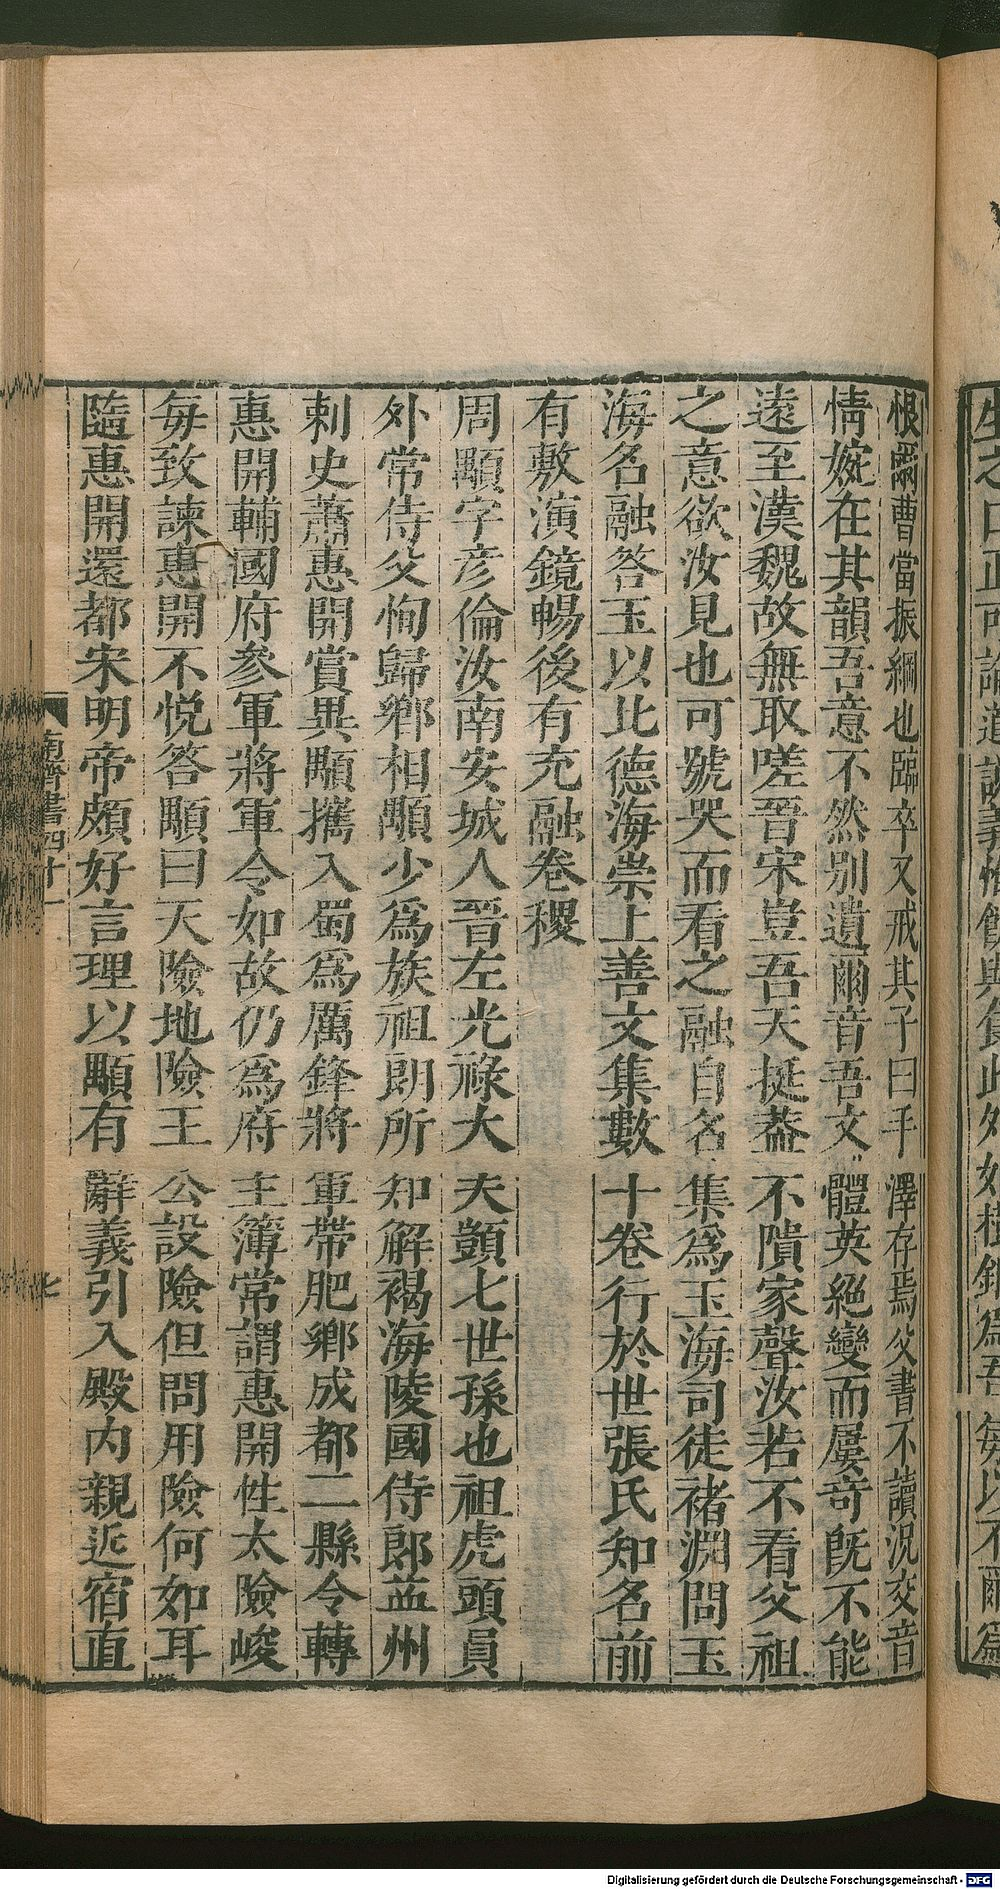 生之口正可論道說義惟飲與食此外如樹網焉吾每以不爾為
恨爾曹當振綱也臨卒又戒其子曰手澤存焉父書不讀況父音
情婉在其韻吾意不然别遺爾音吾文體英絕變而屢奇旣不能
遠至漢魏故無取嗟晉宋豈吾天挺葢不隤家聲汝若不看父祖
之意欲汝見也可號哭而看之融自名集爲玉海司徒禇淵問玉
海名融荅玉以比德海崇上善文集數十卷行於世張氏知名前
有敷演鏡暢後有充融卷稷
周顒字彥倫汝南安城人晉左光祿大夫顗七世孫也祖虎頭員
外常侍父恂歸鄉相顒少爲族祖朗所知解褐海陵國侍郎益州
刺史蕭惠開賞異顒攜入蜀爲厲鋒將軍帶肥鄉成都二縣令轉
惠開輔國府參軍將軍令如故仍爲府主簿常謂惠開性太險峻
每致諫惠開不悅荅顒曰天險地險王公設險但問用險何如耳
隨惠開還都宋明帝頗好言理以顒有辭義引入殿內親近宿直
南齊書四十一
七
Digitalisierung gefördert durch die Deutsche Forschungsgemeinschaft - DFG